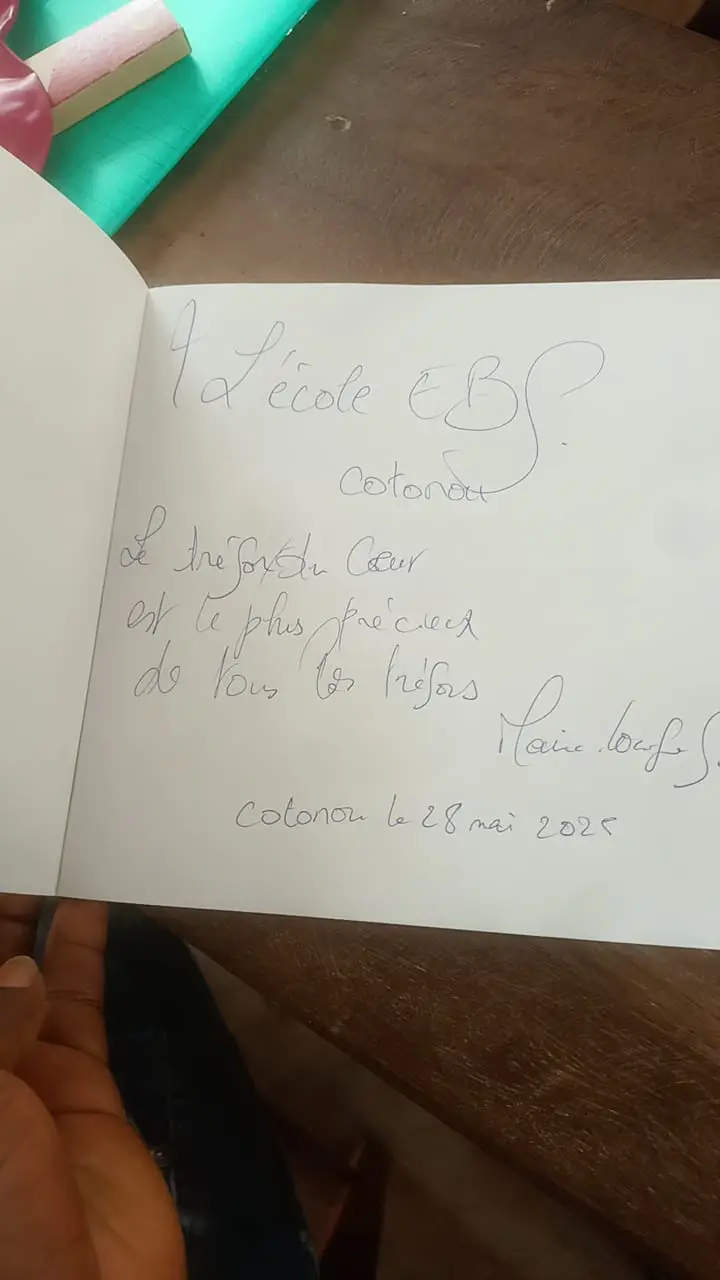 A L'école EBS.
Cotonou
Le trésor du Cœur
est le plus précieux
de tous les trésors
Cotonou le 28 mai 2025